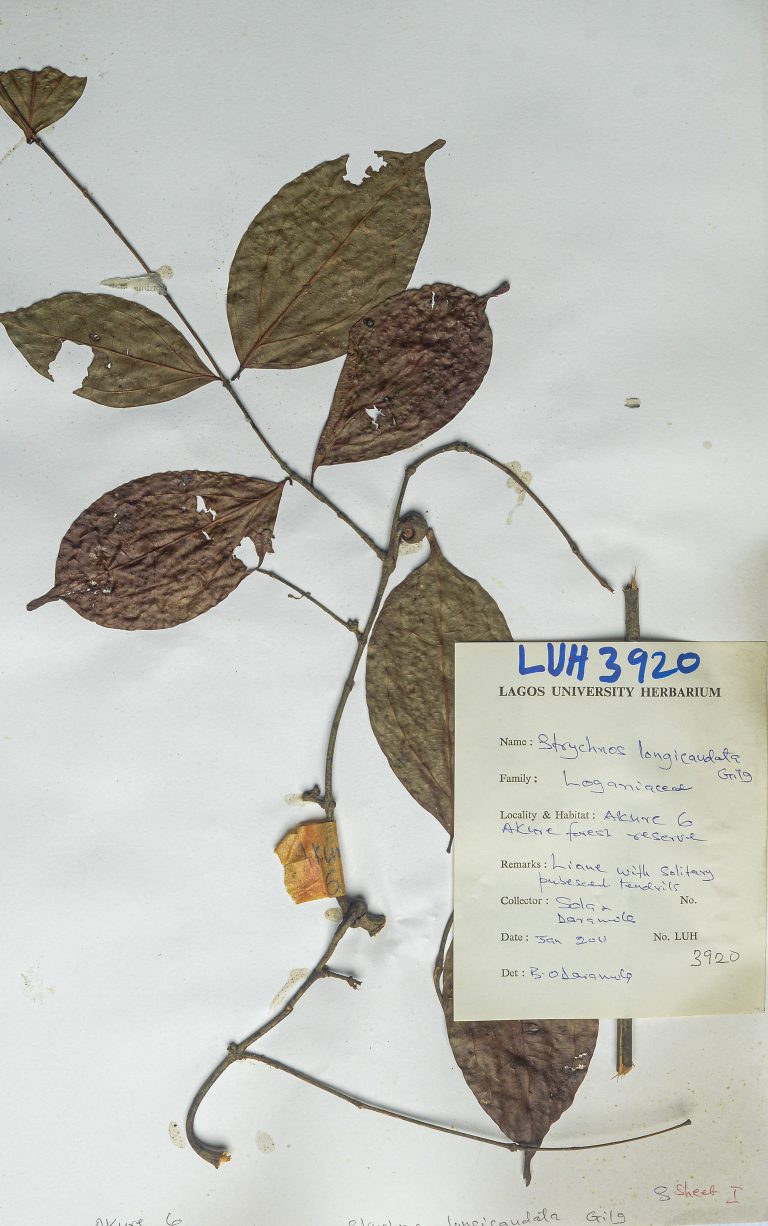 LUH 3920
LAGOS UNIVERSITY HERBARIUM
Name: Strychnos longicaudata
Gilg
Family: Loganiaceae
Locality & Habitat: AKure 6
AKure forest reserve
Remarks: Liane with solitary
pubescent tendrils
Collector: Sola & No.
Daramola
Date: Jan 2011 No. LUH
3920
Det: B.O Daramola
AKure
6
Sheet I
AKure 6 Strychnos longicaudata Gilg